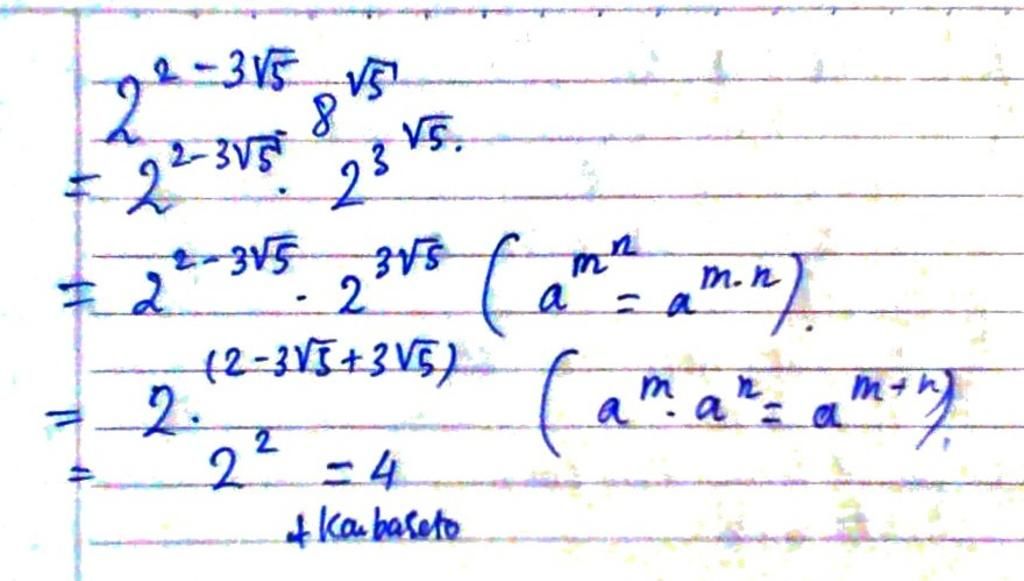 2^{2-3√5} 8^{√5}
= 2^{2-3√5} · 2^{3^{√5}}.
= 2^{2-3√5} · 2^{3√5} (a^{m^n} = a^{m·n}).
= 2·^{(2-3√5+3√5)} (a^m · a^n = a^{m+n}).
= 2^2 = 4